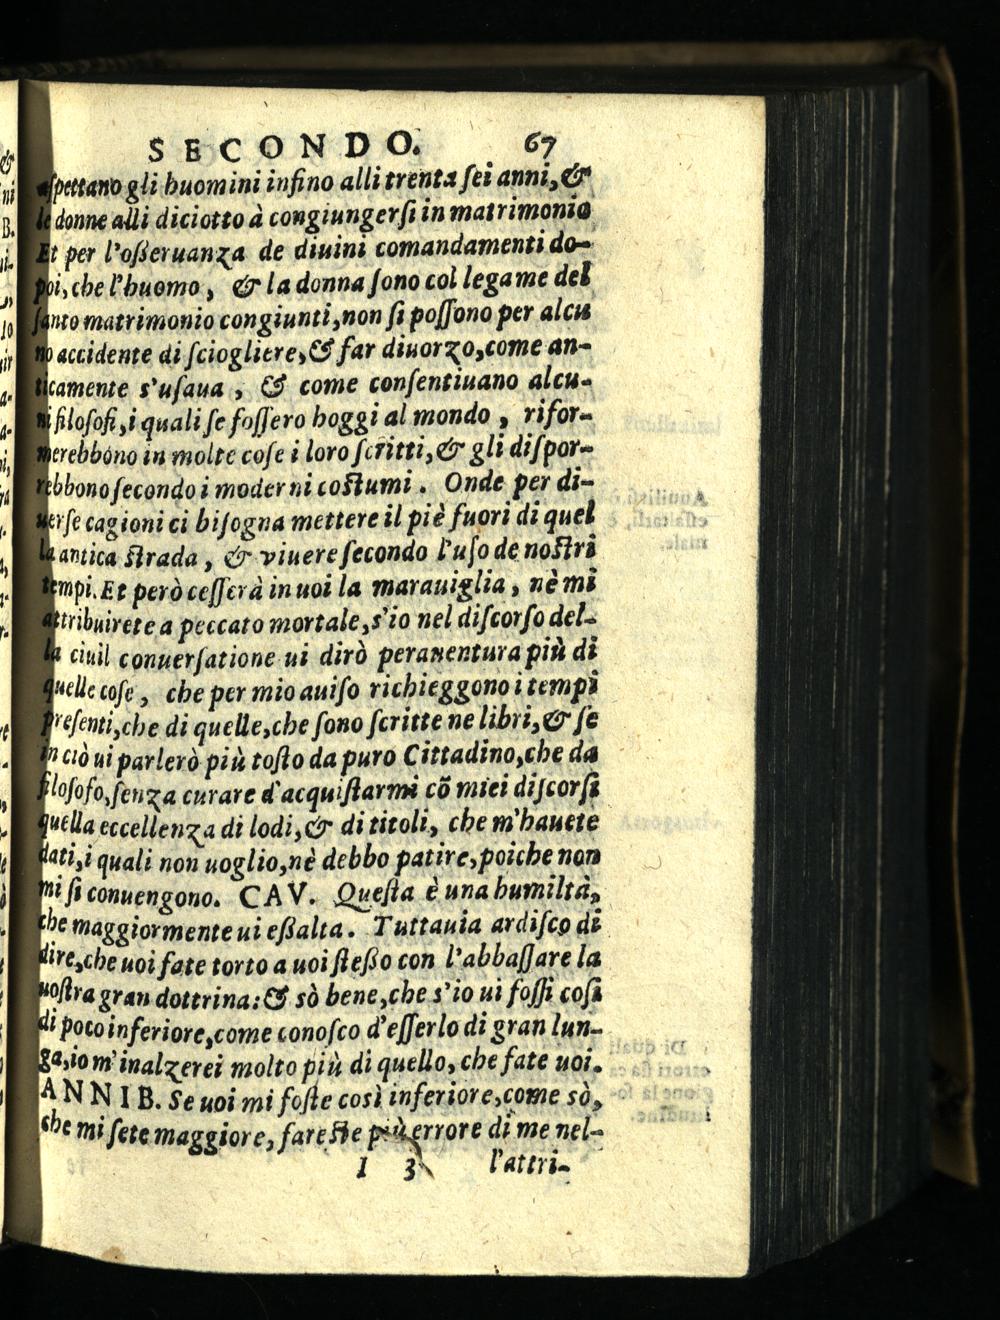 SECONDO. 67
aſpettano gli huomini infino alli trenta ſei anni, &
le donne alli diciotto à congiungerſi in matrimonio
Et per l'oßeruanza de diuini comandamenti do-
poi, che l'huomo, & la donna ſono col legame del
ſanto matrimonio congiunti, non ſi poſſono per alcu
no accidente di ſciogliere, & far diuorzo, come an-
ticamente s'uſaua, & come conſentiuano alcu-
ni filoſofi, i quali ſe foſſero hoggi al mondo, rifor-
merebbono in molte coſe i loro ſcritti, & gli diſpor-
rebbono ſecondo i moderni coſtumi. Onde per di-
uerſe cagioni ci biſogna mettere il piè fuori di quel
la antica ſtrada, & viuere ſecondo l'uſo de noſtri
tempi. Et però ceſſerà in uoi la marauiglia, nè mi
attribuirete a peccato mortale, s'io nel diſcorſo del-
la ciuil conuerſatione ui dirò perauentura più di
quelle coſe, che per mio auiſo richieggono i tempi
preſenti, che di quelle, che ſono ſcritte ne libri, & ſe
in ciò ui parlerò più toſto da puro Cittadino, che da
filoſofo, ſenza curare d'acquiſtarmi cõ miei diſcorſi
quella eccellenza di lodi, & di titoli, che m'hauete
dati, i quali non uoglio, nè debbo patire, poiche non
mi ſi conuengono. CAV. Queſta è una humiltà,
che maggiormente ui eßalta. Tuttauia ardiſco di
dire, che uoi fate torto a uoi ſteßo con l'abbaſſare la
uoſtra gran dottrina: & sò bene, che s'io ui foſſi coſi
di poco inferiore, come conoſco d'eſſerlo di gran lun-
ga, io m'inalzerei molto più di quello, che fate uoi.
ANNIB. Se uoi mi foſte così inferiore, come sò,
che mi ſete maggiore, fareſte più errore di me nel-
I 3 l'attri-